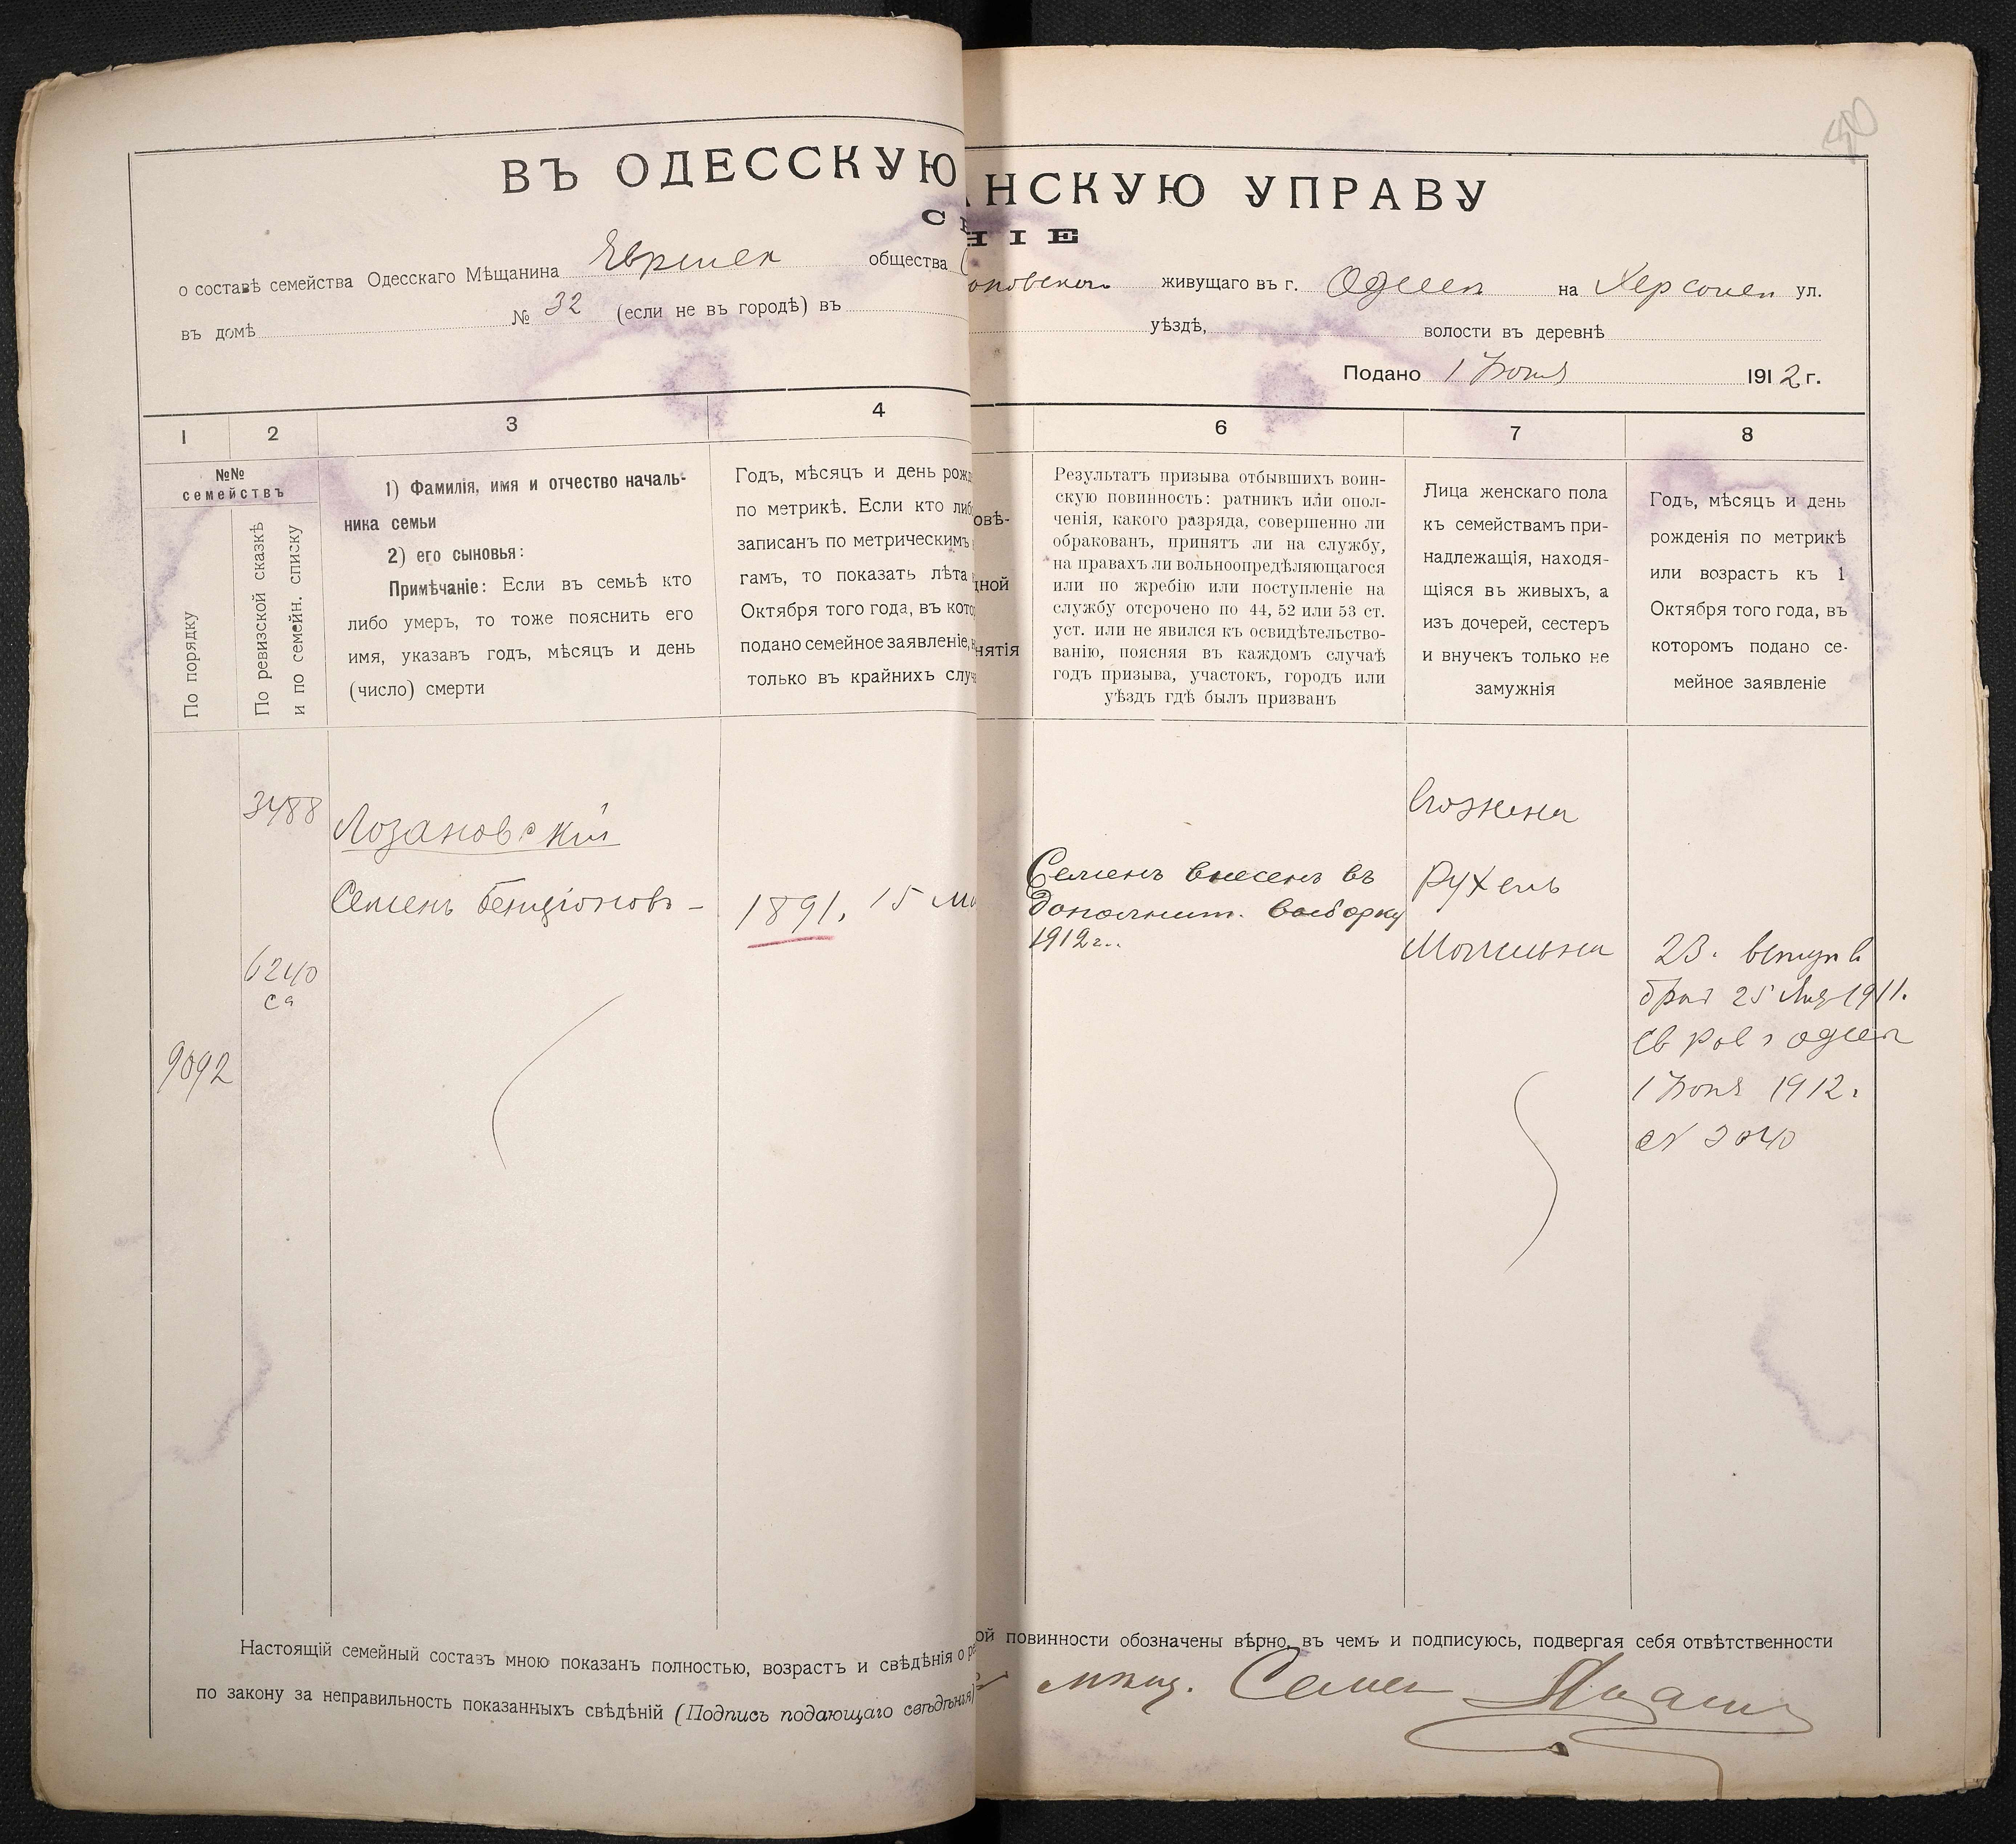 40
ВЪ ОДЕССКУЮ
НСКУЮ УПРАВУ
НІЕ
о составѣ семейства Одесскаго Мѣщанина Евреиск общества
живущаго въ г. Одессѣ на Херсонск ул.
въ домѣ № 32 (если не въ городѣ) въ
уѣздѣ, волости въ деревнѣ
Подано 1 Іюня 1912 г.
1 2 3 4
6 7 8
№№
семействъ
По порядку
По ревизской сказкѣ
и по семейн. списку
1) Фамилія, имя и отчество началь-
ника семьи
2) его сыновья:
Примѣчаніе: Если въ семьѣ кто
либо умеръ, то тоже пояснить его
имя, указавъ годъ, мѣсяцъ и день
(число) смерти
Годъ, мѣсяцъ и день рожд
по метрикѣ. Если кто либ
записанъ по метрическимъ
гамъ, то показать лѣта
Октября того года, въ кото
подано семейное заявленіе,
только въ крайнихъ случ
овѣ-
дной
нятія
Результатъ призыва отбывшихъ воин-
скую повинность: ратникъ или опол-
ченія, какого разряда, совершенно ли
обракованъ, принятъ ли на службу,
на правахъ ли вольноопредѣляющагося
или по жребію или поступленіе на
службу отсрочено по 44, 52 или 53 ст.
уст. или не явился къ освидѣтельство-
ванію, поясняя въ каждомъ случаѣ
годъ призыва, участокъ, городъ или
уѣздъ гдѣ былъ призванъ
Лица женскаго пола
къ семействамъ при-
надлежащія, находя-
щіяся въ живыхъ, а
изъ дочерей, сестеръ
и внучекъ только не
замужнія
Годъ, мѣсяцъ и день
рожденія по метрикѣ
или возрастъ къ 1
Октября того года, въ
которомъ подано се-
мейное заявленіе
3488
Лозановскій
Семенъ Бенціоновъ –
1891. 15 ма
6240
са
9092
Семенъ внесенъ въ
дополнит. выборку
1912 г.
Его жена
Рухель
23. вступ в
брак 25 1911.
1 Іюня 1912 г.
№ 3040
Настоящій семейный составъ мною показанъ полностью, возрастъ и свѣдѣнія о
ой повинности обозначены вѣрно, въ чемъ и подписуюсь, подвергая себя отвѣтственности
по закону за неправильность показанныхъ свѣдѣній (Подпись подающаго свѣдѣнія)
мѣщ. Семен